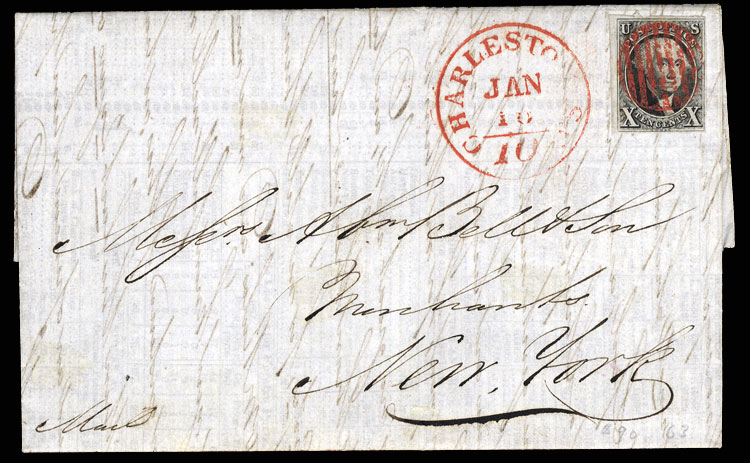 CHARLESTO
JAN
18
10
U S
POST OFFICE
X TEN CENTS X
Messrs. Abm Bell & Son
Merchants
New, York
Mail
63